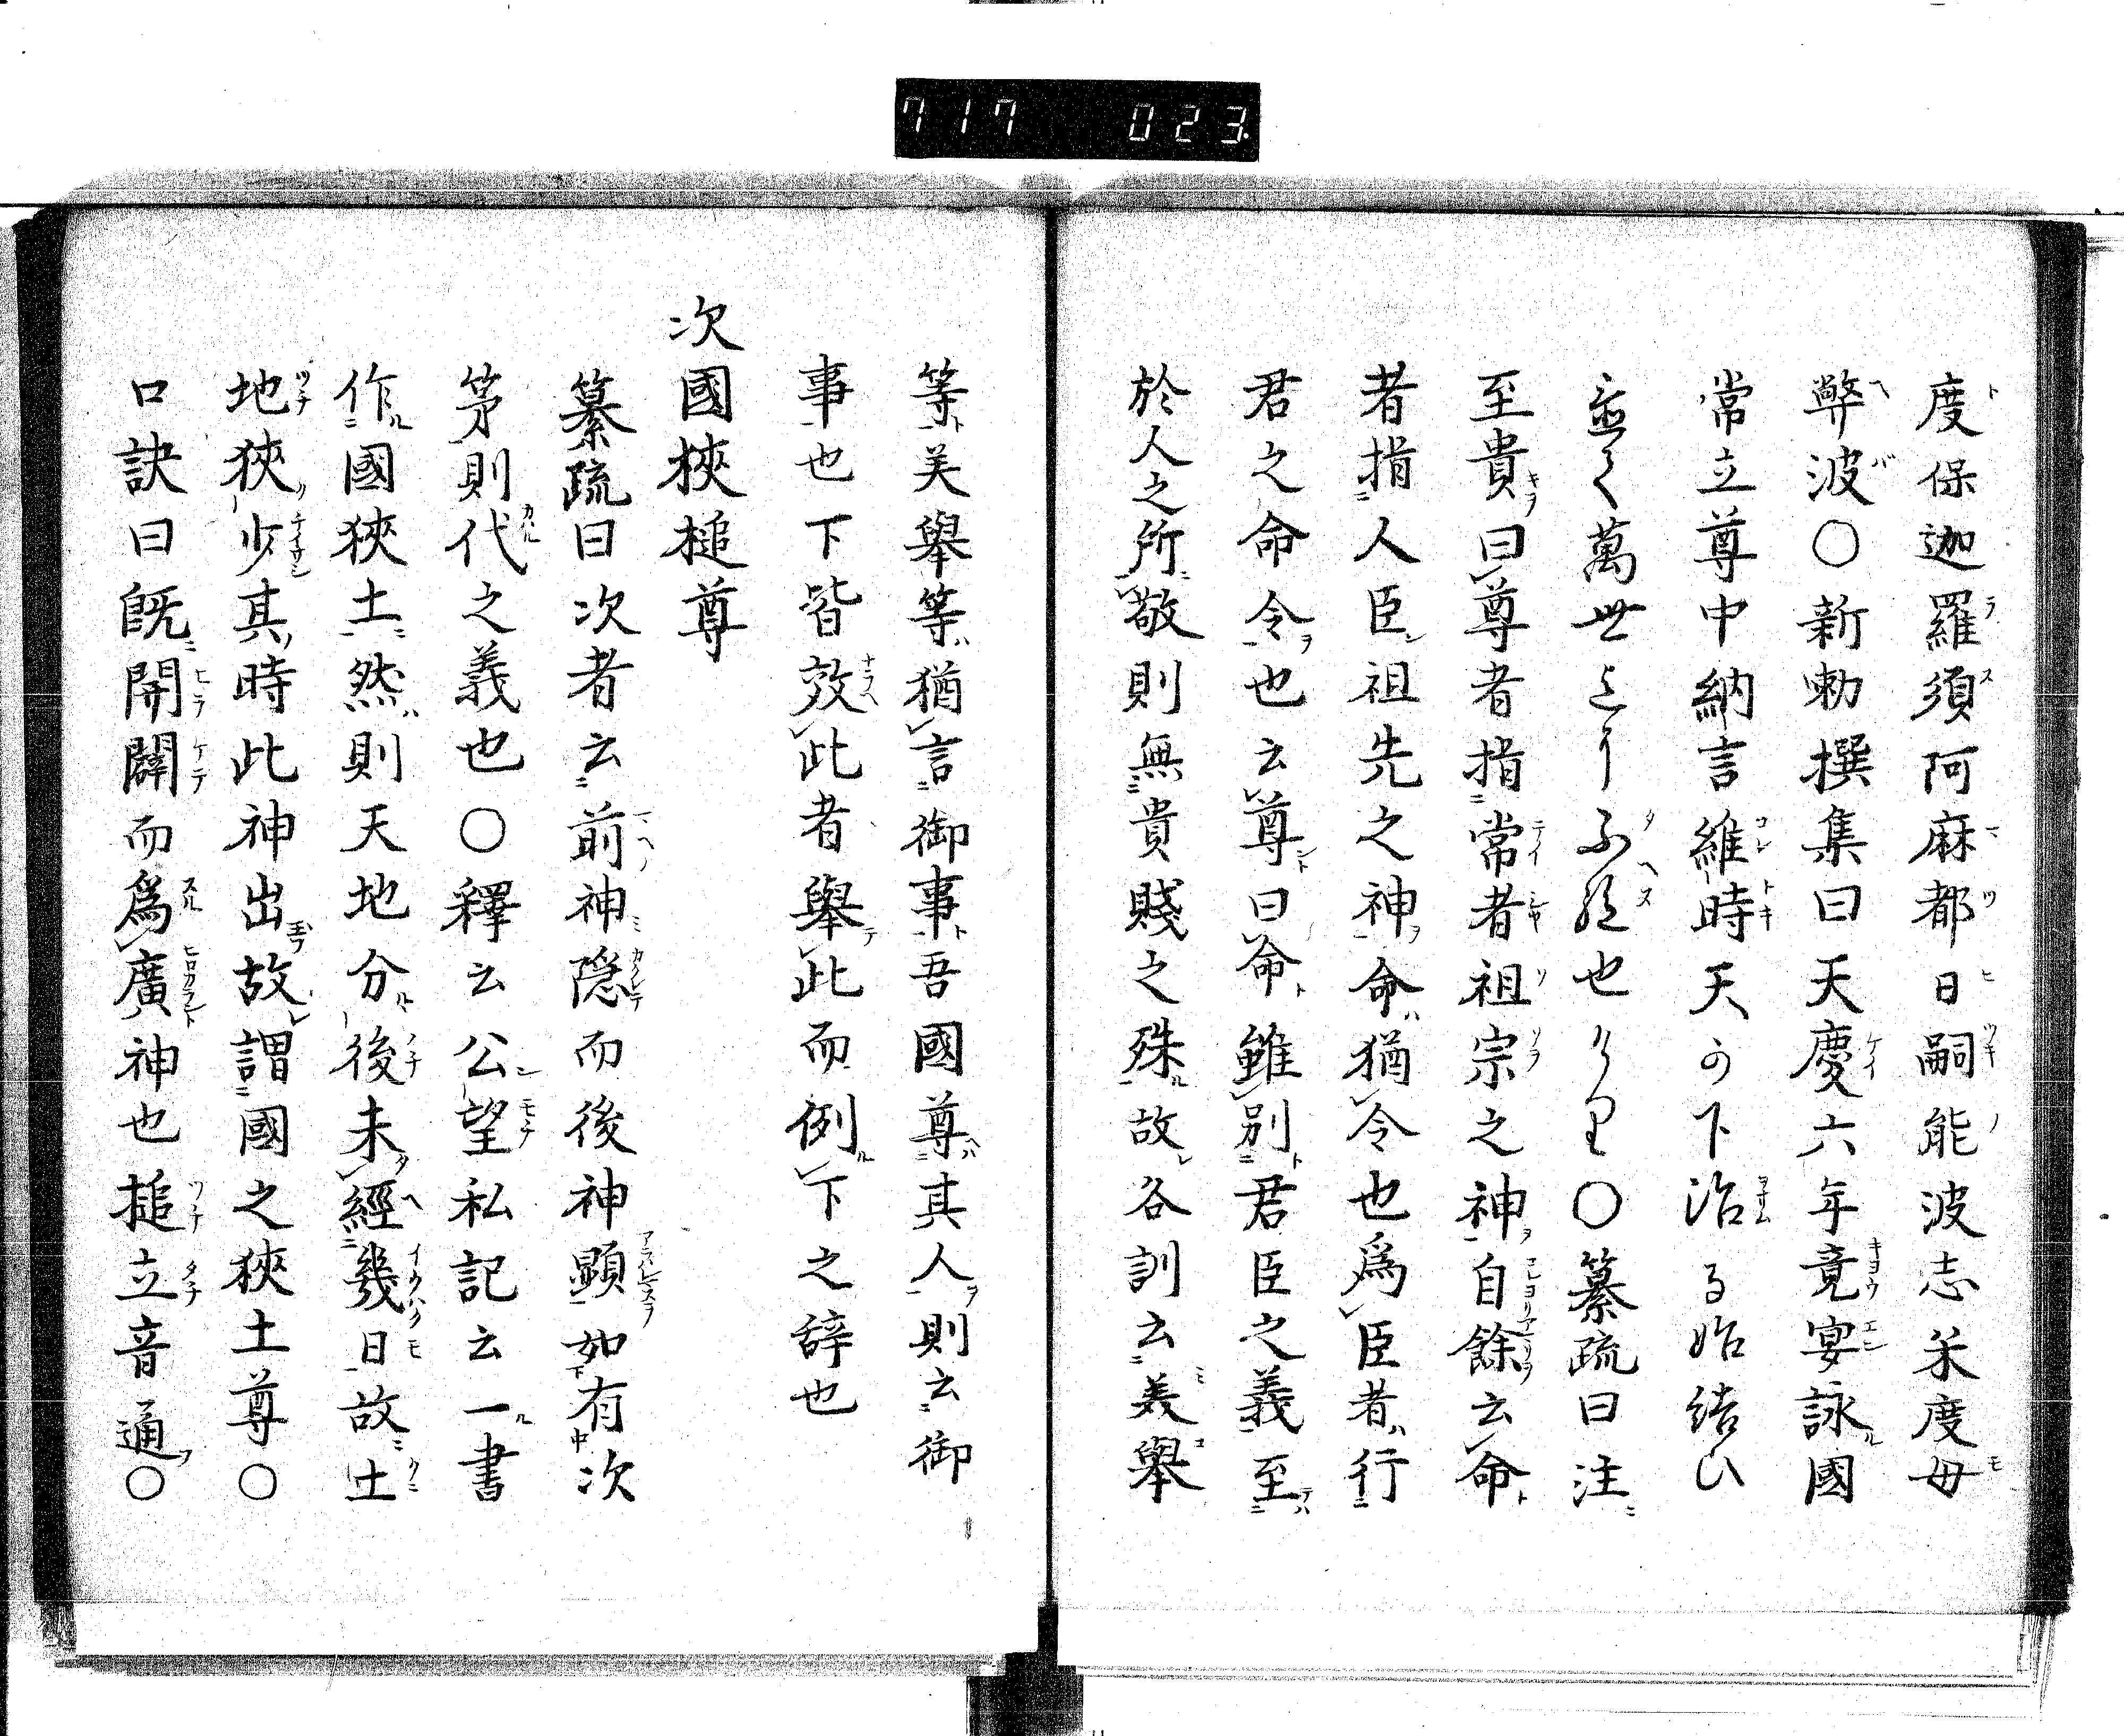 717 023
度保迦羅須阿麻都日嗣能波志米度毋
弊波○新勅撰集曰天慶六年竟宴詠國
常立尊中納言維時天の下治る始結ひ
置て萬世まてに不絶也けり○纂疏曰注
至貴曰尊者指常者祖宗之神自餘云命
者指人臣祖先之神命猶令也爲臣者行
君之命令也云尊曰命雖別君臣之義至
於人之所敬則無貴賤之殊故各訓云美舉
等美舉等猶言御事吾國尊其人則云御
事也下皆效此者舉此而例下之辞也
次國狹槌尊
纂疏曰次者云前神隱而後神顕如有次
第則代之義也○釋云公望私記云一書
作國狹土然則天地分後未經幾日故土
地狹少其時此神出故謂國之狹土尊○
口訣曰既開闢而爲廣神也槌立音通○